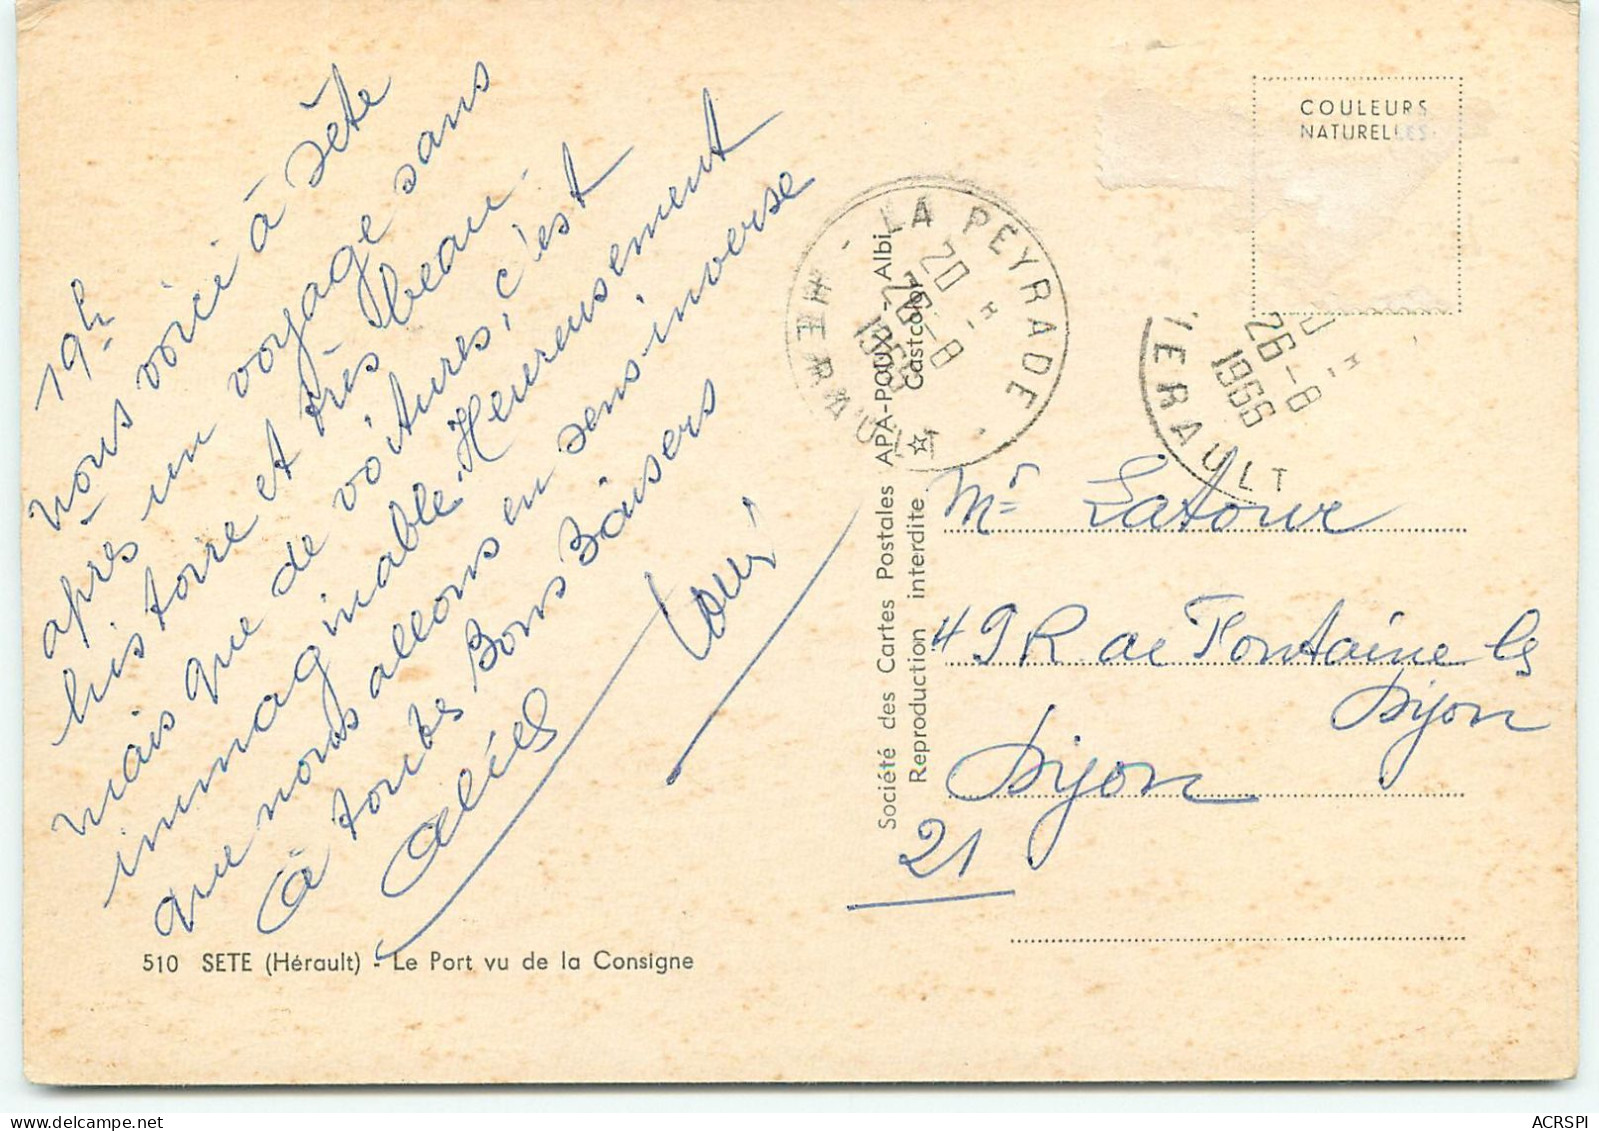 19h
nous voici à Sète
après un voyage sans
histoire et très beau.
mais que de voitures, c'est
immaginable. Heureusement
que nous allons en sens inverse
à toutes Bons Baisers
510 SETE (Hérault) - Le Port vu de la Consigne
Société des Cartes Postales APA-POUX - Albi
Reproduction interdite ☆ Castcolor
LA PEYRADE - HERAULT
20 H
26-8
1966
HERAULT
H
26-8
1966
COULEURS
NATURELLES
Mr Latour
49 R de Fontaine les
Dijon
Dijon
21
ACRSPI